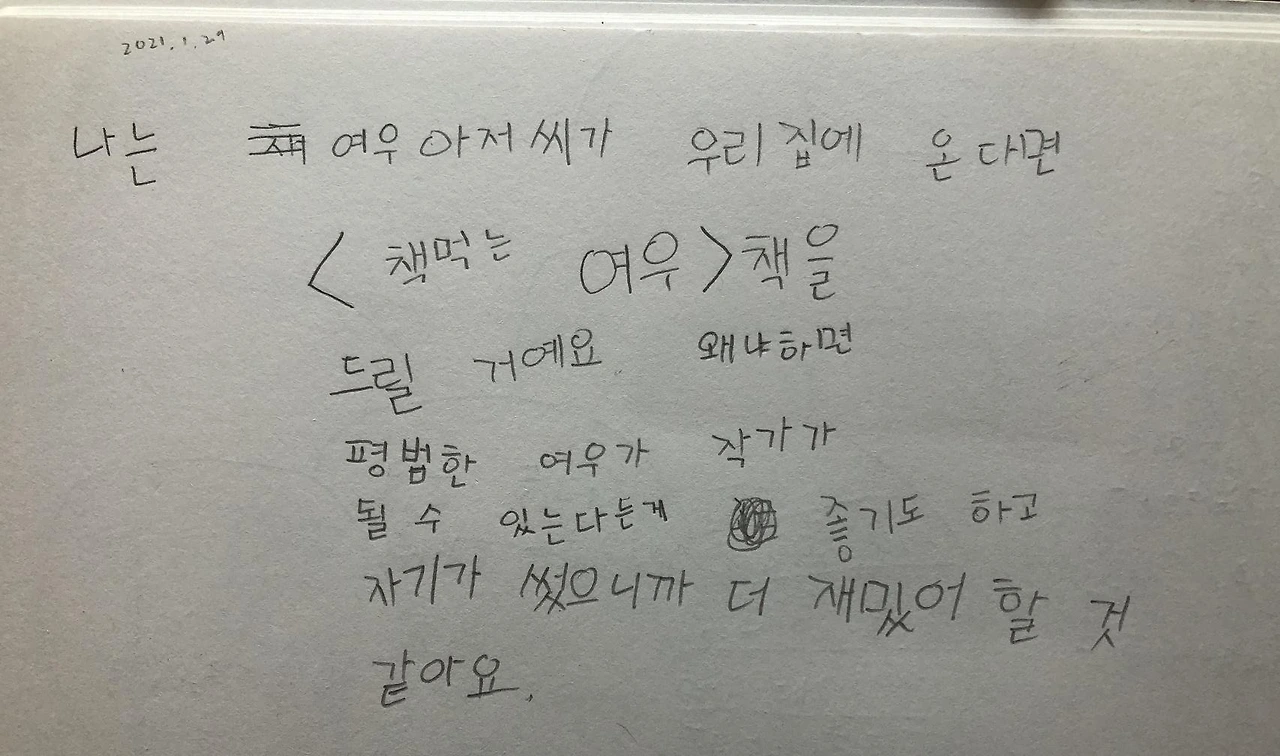 2021.1.29
나는 여우아저씨가 우리집에 온다면
<책먹는 여우>책을
드릴 거예요 왜냐하면
평범한 여우가 작가가
될 수 있는다는게 좋기도 하고
자기가 썼으니까 더 재밌어 할 것
같아요.